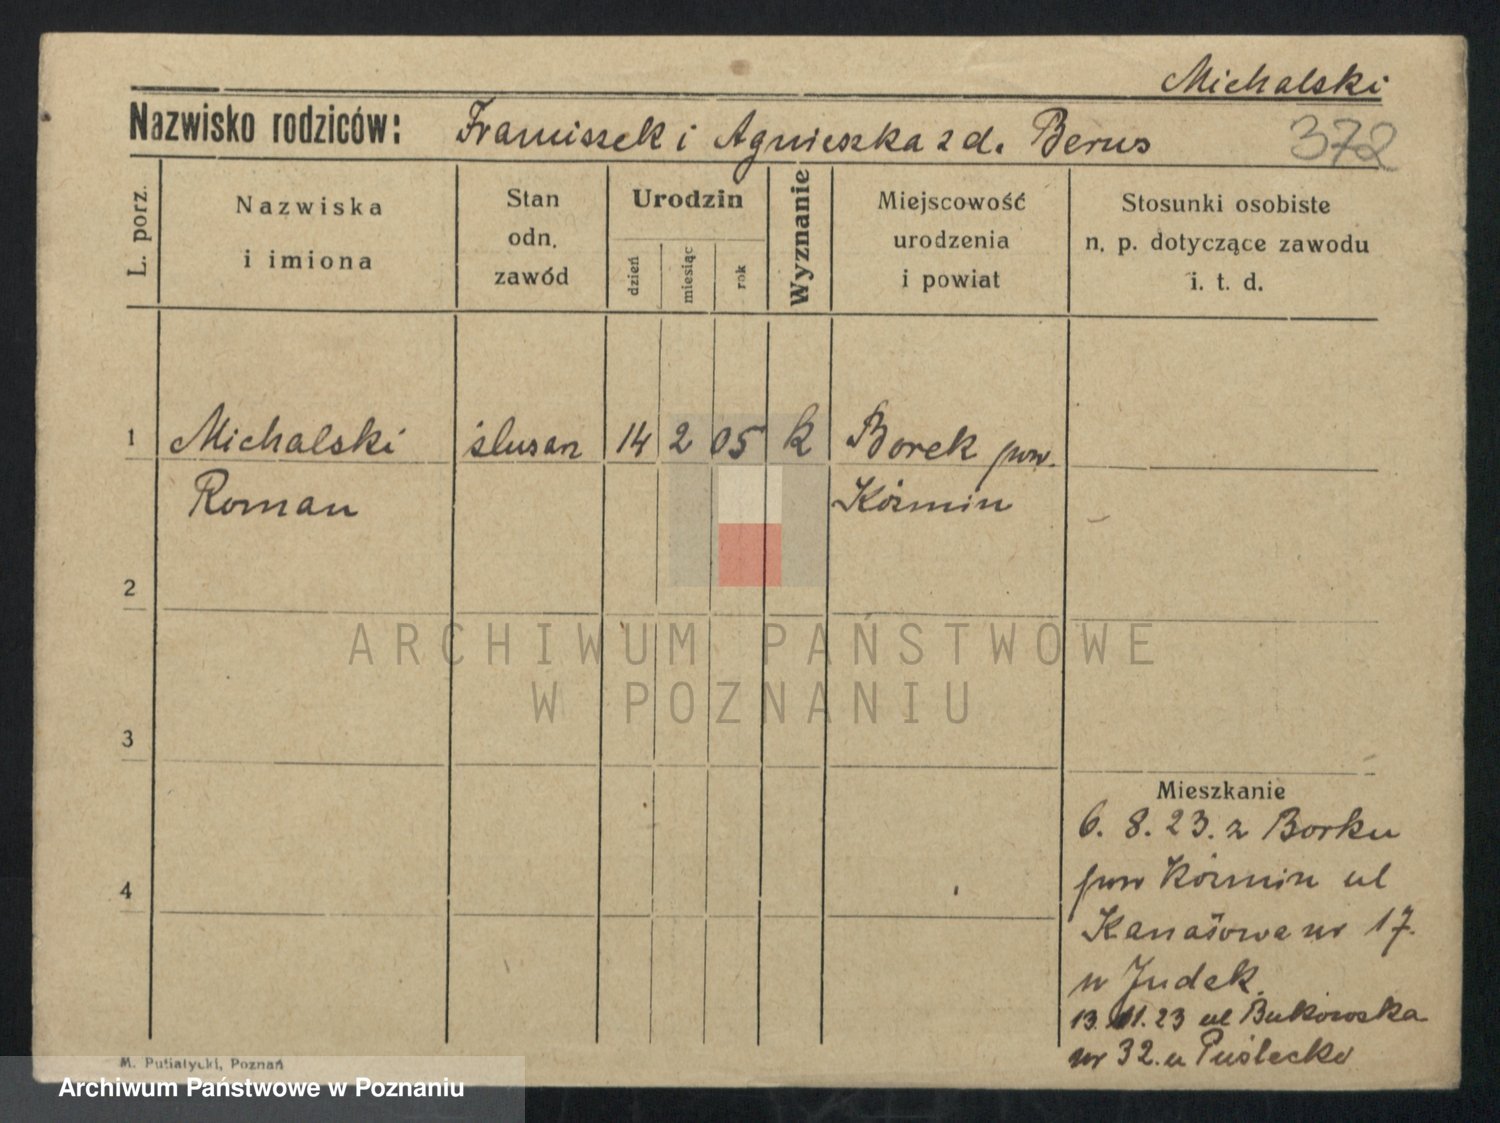 Michalski
Nazwisko rodziców: Franciszek i Agnieszka z d. Berus
372
L. porz.
Nazwiska
i imiona
Stan
odn.
zawód
Urodzin
dzień
miesiąc
rok
Wyznanie
Miejscowość
urodzenia
i powiat
Stosunki osobiste
n. p. dotyczące zawodu
i. t. d.
1 Michalski ślusarz 14 2 05 k Borek pow.
Roman Koźmin
2
ARCHIWUM PAŃSTWOWE
W POZNANIU
3
Mieszkanie
6. 8. 23. z Borku
4 pow Koźmin ul
Kanałowa nr 17.
u Judek.
13. 11. 23 ul Bukowska
nr 32. u
M. Putiatycki, Poznań
Archiwum Państwowe w Poznaniu